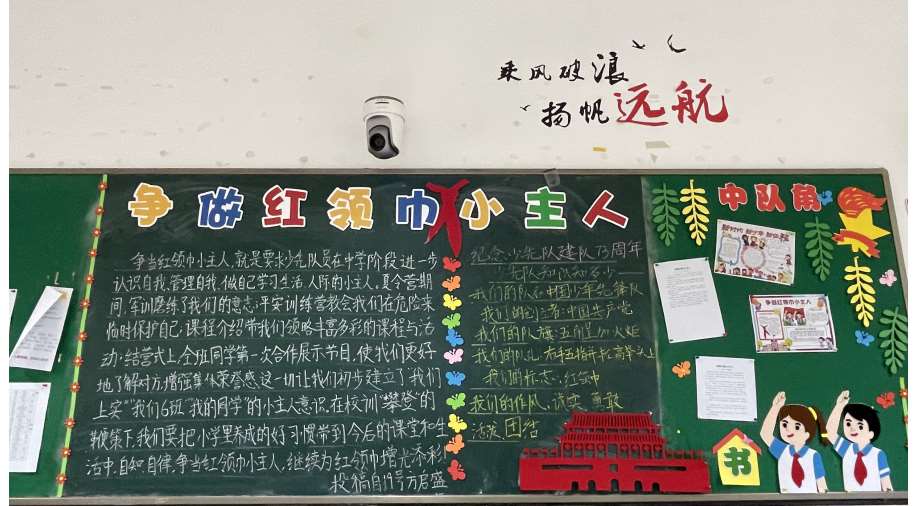 乘风破浪
扬帆远航
争做红领巾小主人
中队角
争当红领巾小主人,就是要求少先队员在中学阶段进一步
认识自我,管理自我,做自己学习生活、人际的小主人。夏令营期
间,军训磨练了我们的意志;平安训练营教会我们在危险来
临时保护自己;课程介绍带我们领略丰富多彩的课程与活
动;结营式上,全班同学第一次合作展示节目,使我们更好
地了解对方,增强集体荣誉感。这一切让我们初步建立了我们
上实“我们6班”“我的同学”的小主人意识。在校训“攀登”的
鞭策下,我们要把小学里养成的好习惯带到今后的课堂和生
活中,自知自律,争当红领巾小主人,继续为红领巾增光添彩!
投稿自19号万君盛
纪念少先队建队73周年
少先队知识知多少
我们的队名:中国少年先锋队
我们的创立者:中国共产党
我们的队旗:五角星加火炬
我们的队礼:右手五指并拢高举头上
我们的标志:红领巾
我们的作风:诚实 勇敢
活泼 团结
争做红领巾小主人
书